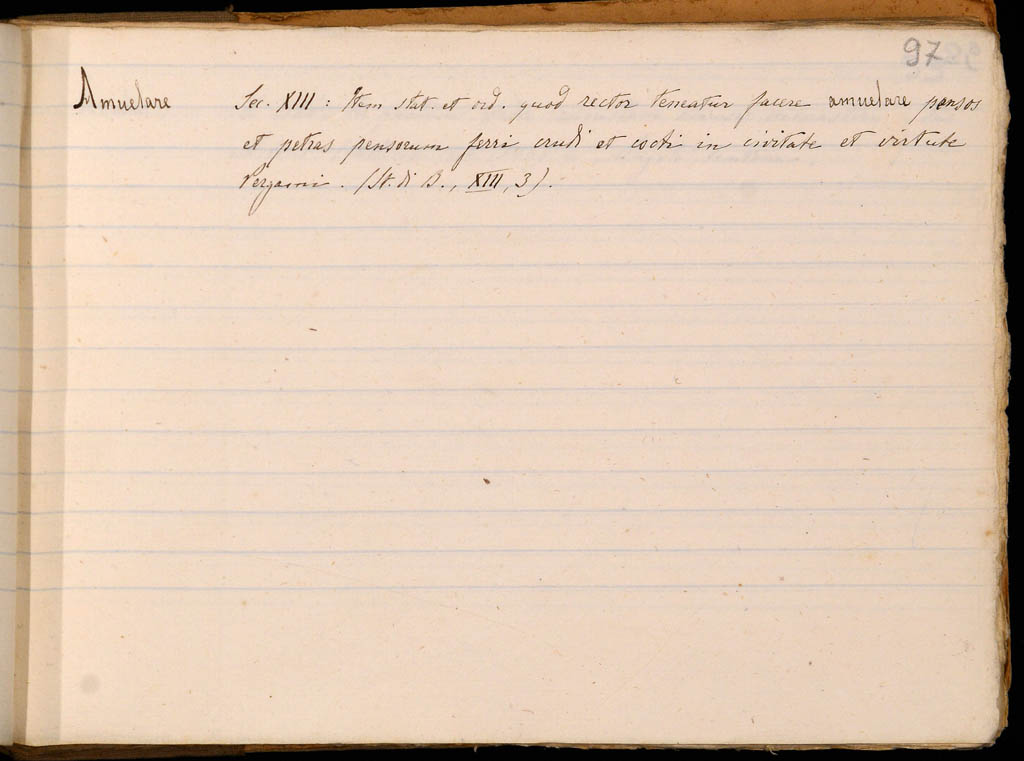 97
Amuelare Sec. XIII: Item stat. et ord. quod rector teneatur facere amuelare pensos
et petras pensorum ferri crudi et cocti in civitate et virtute
Pergami. (St. di B., XIII, 3).